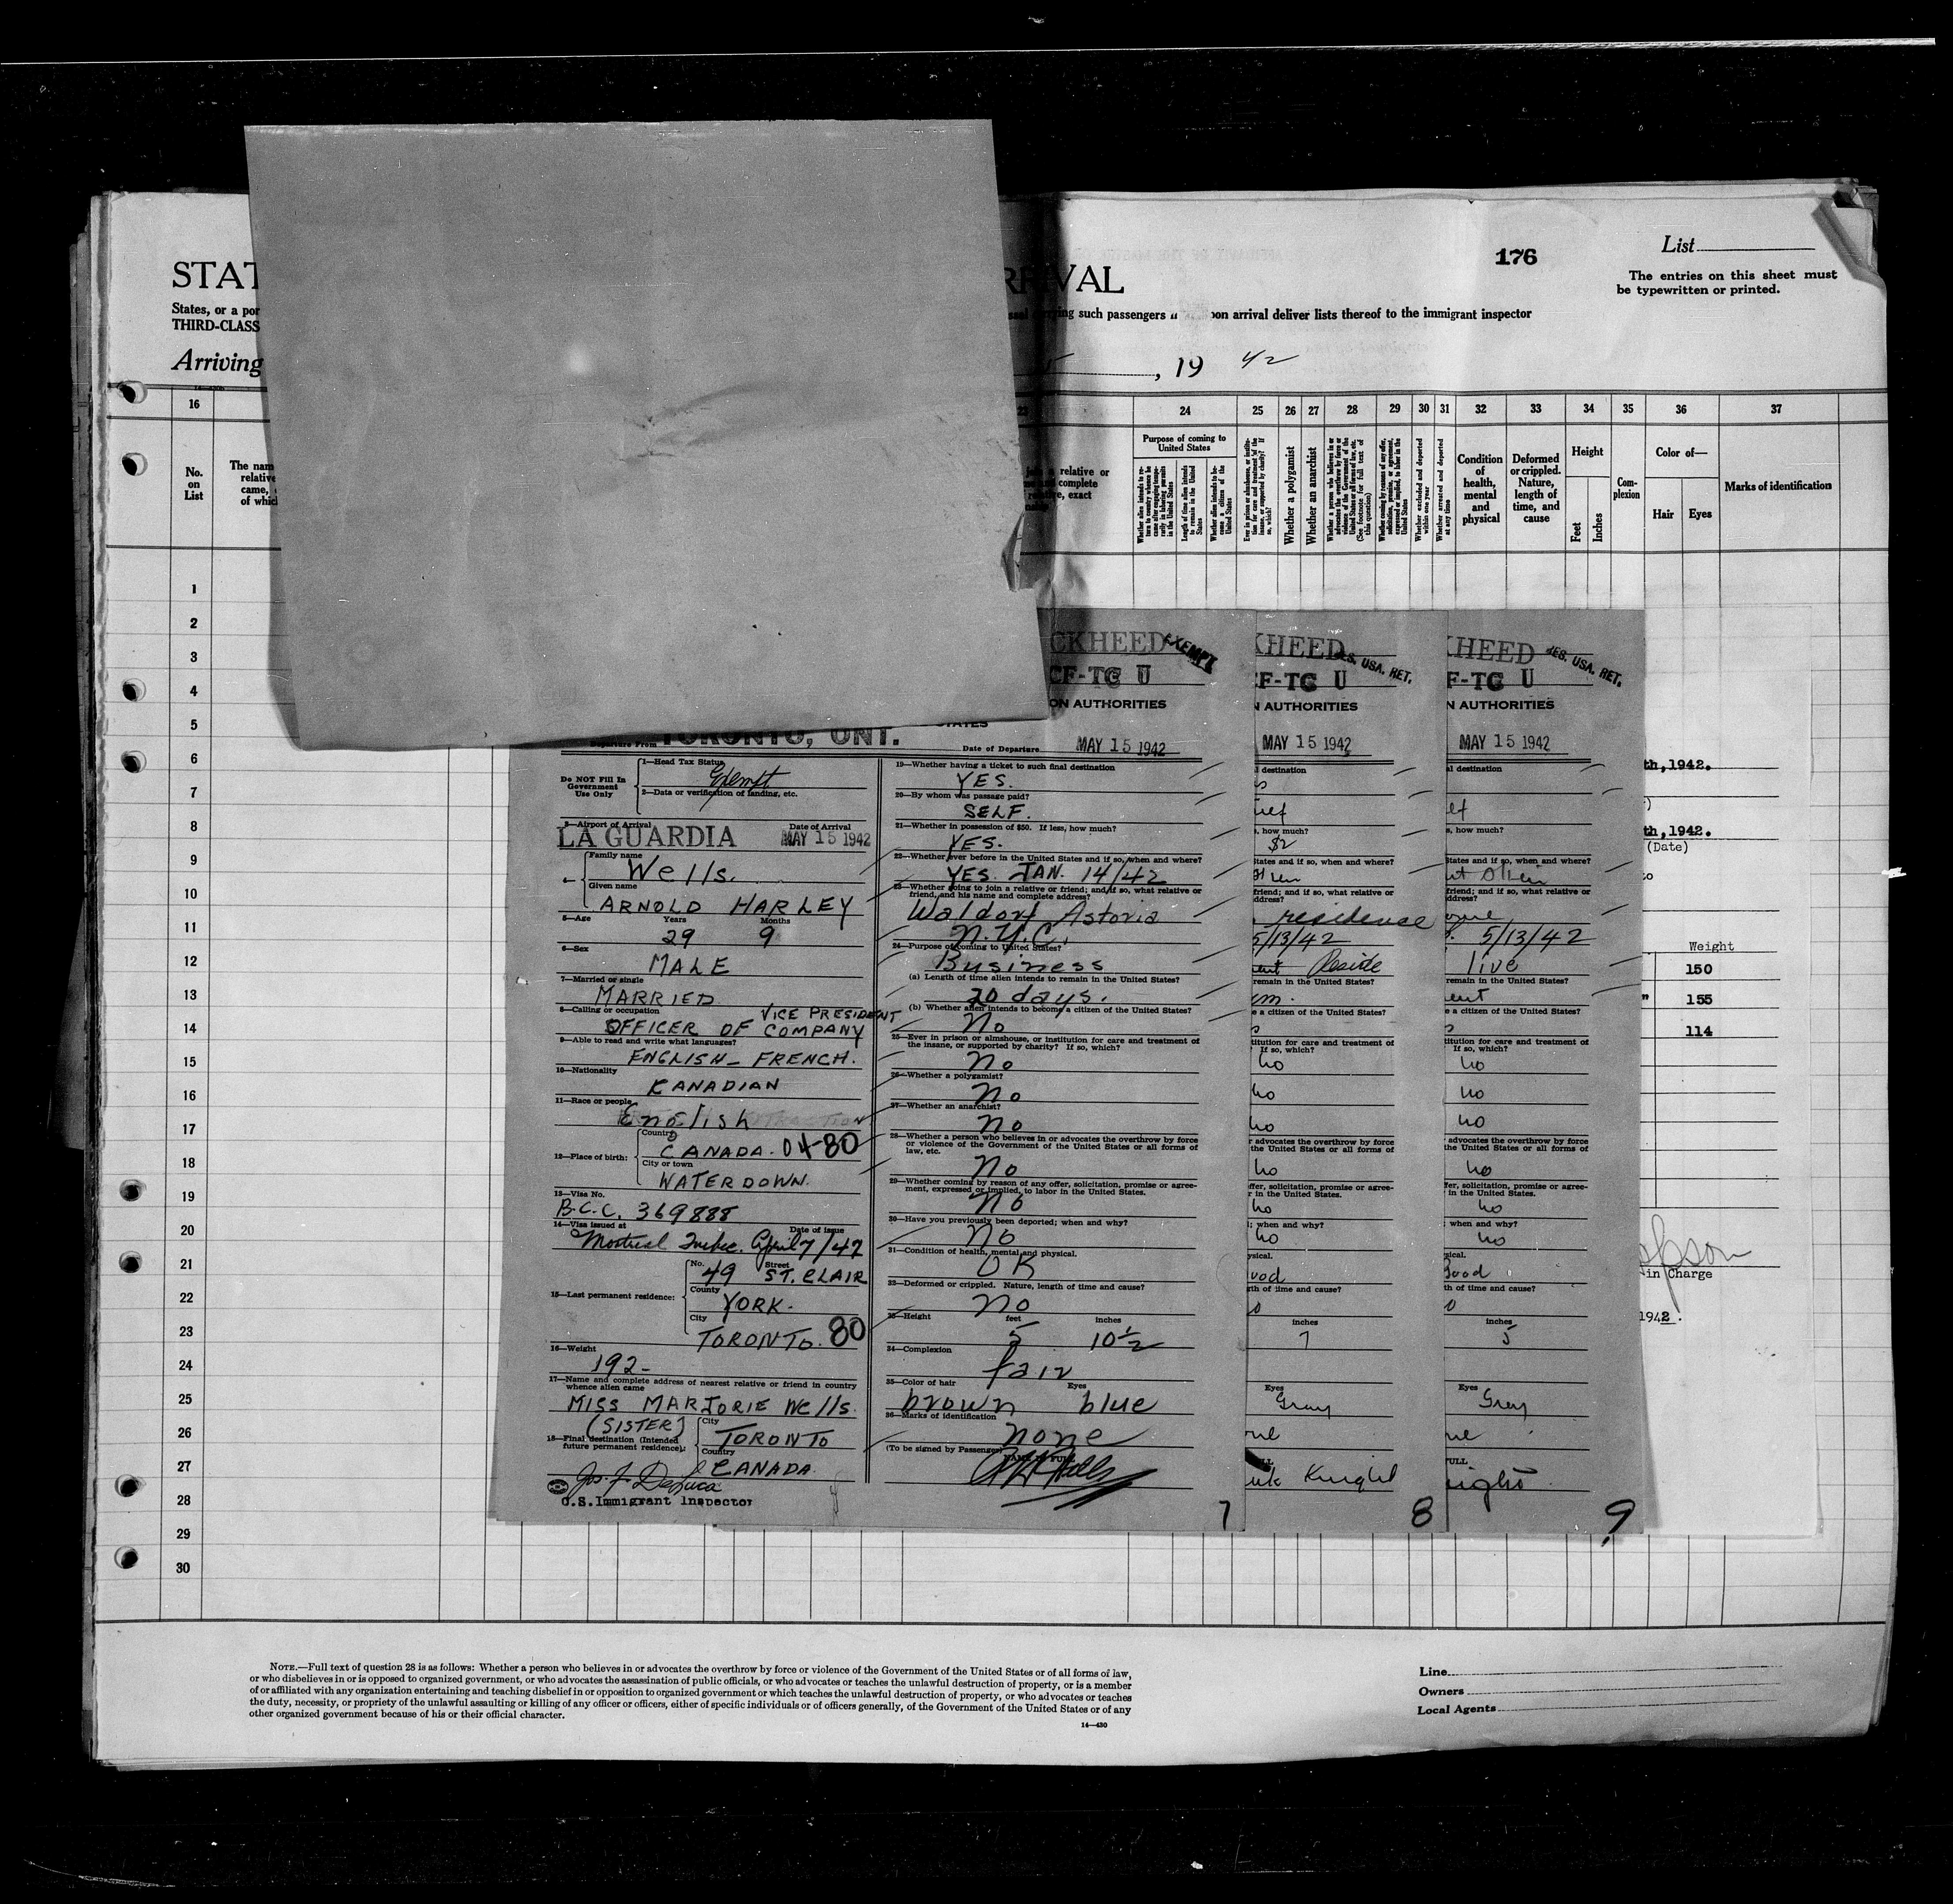 176
List
The entries on this sheet must
be typewritten or printed.
STAT
RIVAL
States, or a por
such passengers
pon arrival deliver lists thereof to the immigrant inspector
THIRD-CLASS
Arriving
, 19 42
16
24 25 26 27 28 29 30 31 32 33 34 35 36 37
No.
on
List
The nam
relative
came,
of whic
a relative or
complete
exact
Purpose of coming to
United States
Whether a polygamist
Whether an anarchist
Condition
of
health,
mental
and
physical
Deformed
or crippled.
Nature,
length of
time, and
cause
Height
Feet
Inches
Com-
plexion
Color of—
Hair Eyes
Marks of identification
1
2
3
4
5
6
7
8
9
10
11
12
13
14
15
16
17
18
19
20
21
22
23
24
25
26
27
28
29
30
CKHEED EXEMPT
CF-TC U
ON AUTHORITIES
TORONTO, ONT.
Departure From
Date of Departure MAY 15 1942
Do NOT Fill In
Government
Use Only
1—Head Tax Status
Exempt
2—Data or verification of landing, etc.
3—Airport of Arrival Date of Arrival
LA GUARDIA MAY 15 1942
Family name
Wells.
Given name
ARNOLD HARLEY
5—Age Years Months
29 9
6—Sex
MALE
7—Married or single
MARRIED
8—Calling or occupation VICE PRESIDENT
OFFICER OF COMPANY
9—Able to read and write what languages?
ENGLISH – FRENCH.
10—Nationality
CANADIAN
11—Race or people
English
12—Place of birth:
Country
CANADA. 04-80
City or town
WATERDOWN.
13—Visa No.
B.C.C. 369888
14—Visa issued at Date of issue
Montreal Quebec. April 7/42
15—Last permanent residence:
No. Street
49 ST. CLAIR
County
YORK.
City
TORONTO. 80
16—Weight
192–
17—Name and complete address of nearest relative or friend in country
whence alien came
MISS MARJORIE Wells.
(SISTER)
18—Final destination (Intended
future permanent residence):
City
TORONTO
Country
CANADA.
Jos. J. DeLuca
U.S. Immigrant Inspector
19—Whether having a ticket to such final destination
YES.
20—By whom was passage paid?
SELF.
21—Whether in possession of $50. If less, how much?
YES.
22—Whether ever before in the United States and if so, when and where?
YES. JAN. 14/42
23—Whether going to join a relative or friend; and if so, what relative or
friend, and his name and complete address?
Waldorf Astoria
N.Y.C.
24—Purpose of coming to United States?
Business
(a) Length of time alien intends to remain in the United States?
20 days.
(b) Whether alien intends to become a citizen of the United States?
No
25—Ever in prison or almshouse, or institution for care and treatment of
the insane, or supported by charity? If so, which?
No
26—Whether a polygamist?
No
27—Whether an anarchist?
No
28—Whether a person who believes in or advocates the overthrow by force
or violence of the Government of the United States or all forms of
law, etc.
No
29—Whether coming by reason of any offer, solicitation, promise or agree-
ment, expressed or implied, to labor in the United States.
No
30—Have you previously been deported; when and why?
No
31—Condition of health, mental and physical.
OK
32—Deformed or crippled. Nature, length of time and cause?
No
33—Height feet inches
5 10½
34—Complexion
fair
35—Color of hair Eyes
brown blue
36—Marks of identification
none
(To be signed by Passenger)
7
KHEED RES. USA. RET.
CF-TC U
N AUTHORITIES
MAY 15 1942
l destination
, how much?
$2
States and if so, when and where?
friend; and if so, what relative or
address?
residence
5/13/42
Reside
remain in the United States?
e a citizen of the United States?
titution for care and treatment of
If so, which?
no
no
no
advocates the overthrow by force
the United States or all forms of
no
ffer, solicitation, promise or agree-
r in the United States.
no
; when and why?
no
ysical.
th of time and cause?
inches
7
Eyes
Gray
Knight
8
KHEED RES. USA. RET.
F-TC U
N AUTHORITIES
MAY 15 1942
l destination
, how much?
States and if so, when and where?
friend; and if so, what relative or
address?
5/13/42
live
remain in the United States?
e a citizen of the United States?
titution for care and treatment of
If so, which?
no
no
no
advocates the overthrow by force
the United States or all forms of
no
ffer, solicitation, promise or agree-
in the United States.
no
when and why?
no
sical.
Good
th of time and cause?
inches
5
Eyes
Grey
9
th, 1942.
th, 1942.
(Date)
Weight
150
" 155
114
in Charge
1942.
NOTE.—Full text of question 28 is as follows: Whether a person who believes in or advocates the overthrow by force or violence of the Government of the United States or of all forms of law,
or who disbelieves in or is opposed to organized government, or who advocates the assassination of public officials, or who advocates or teaches the unlawful destruction of property, or is a member
of or affiliated with any organization entertaining and teaching disbelief in or opposition to organized government or which teaches the unlawful destruction of property, or who advocates or teaches
the duty, necessity, or propriety of the unlawful assaulting or killing of any officer or officers, either of specific individuals or of officers generally, of the Government of the United States or of any
other organized government because of his or their official character.
14—430
Line
Owners
Local Agents